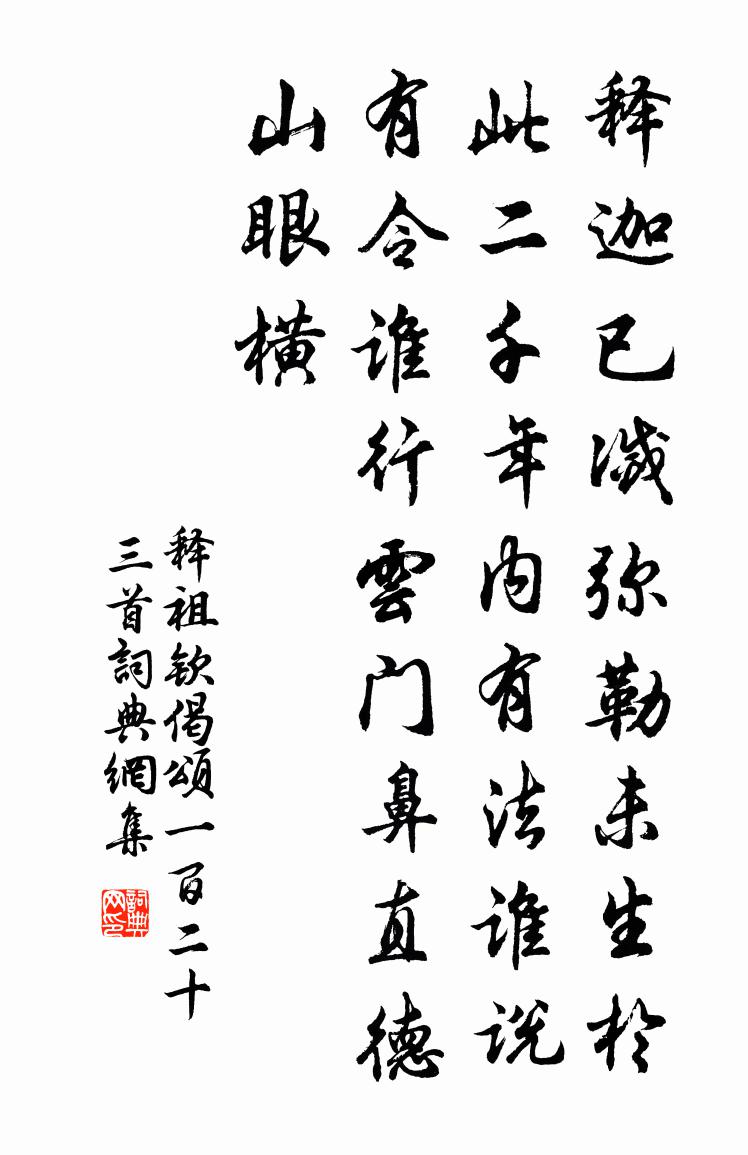 释迦已滅弥勒未生於
此二千年内有法谁説
有令谁行雲门鼻直德
山眼橫
释祖钦偈頌一百二十
三首詞典網集
詞典
网印